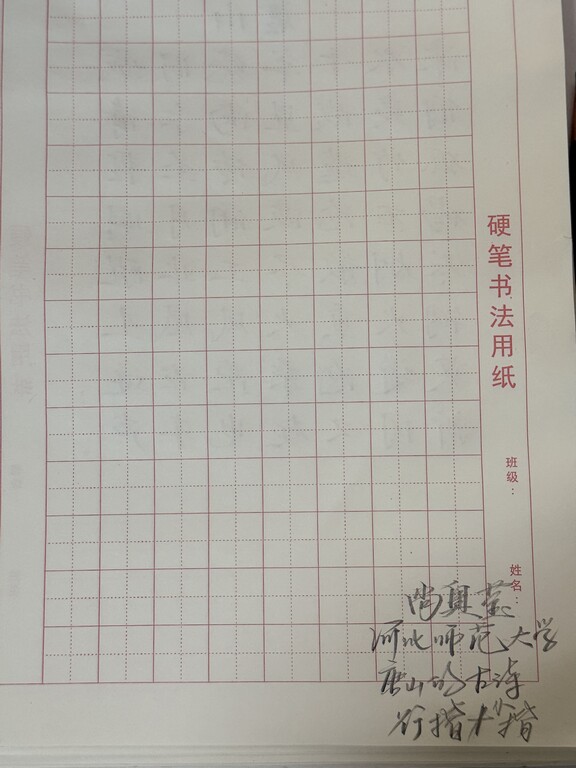 硬笔书法用纸
班级：
姓名：
河北师范大学
唐山的古诗
行楷 小楷